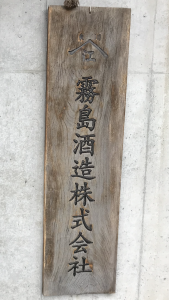 江
霧島酒造株式会社